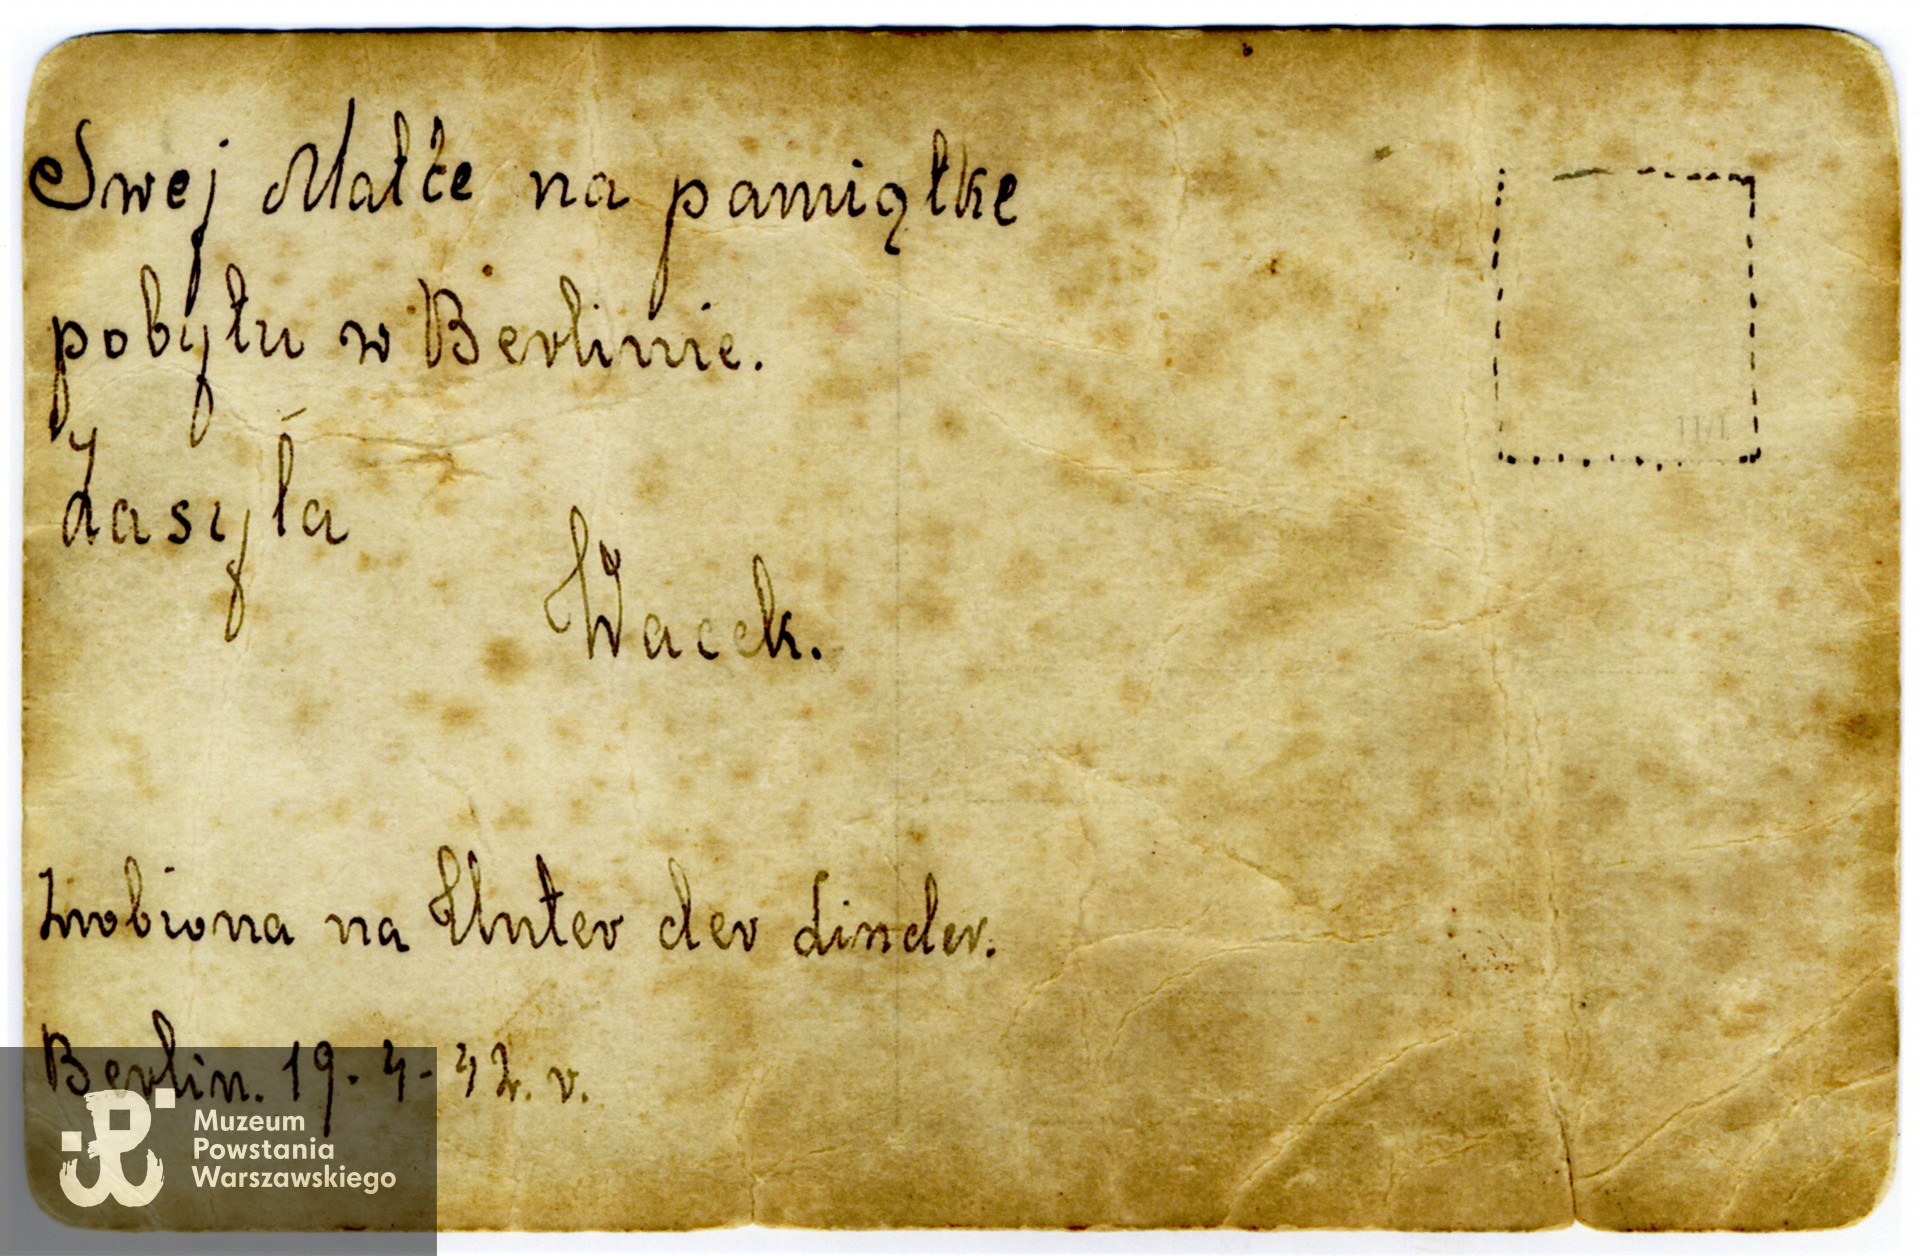 Swej Matće na pamiątke
pobytu w Berlinie.
Zasyła
Wacek.
Zrobiona na Unter der Linder.
Berlin. 19-4-42. r.
Muzeum
Powstania
Warszawskiego